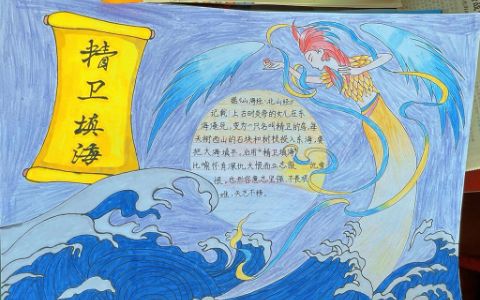 精卫填海
据《山海经·北山经》
记载,上古时炎帝的女儿在东
海淹死,变为一只名叫精卫的鸟,每
天衔西山的石块和树枝投入东海,要
把大海填平。后用“精卫填海”
比喻怀有深仇大恨而立志报
很,也形容意志坚强,不畏艰
难,矢志不移。